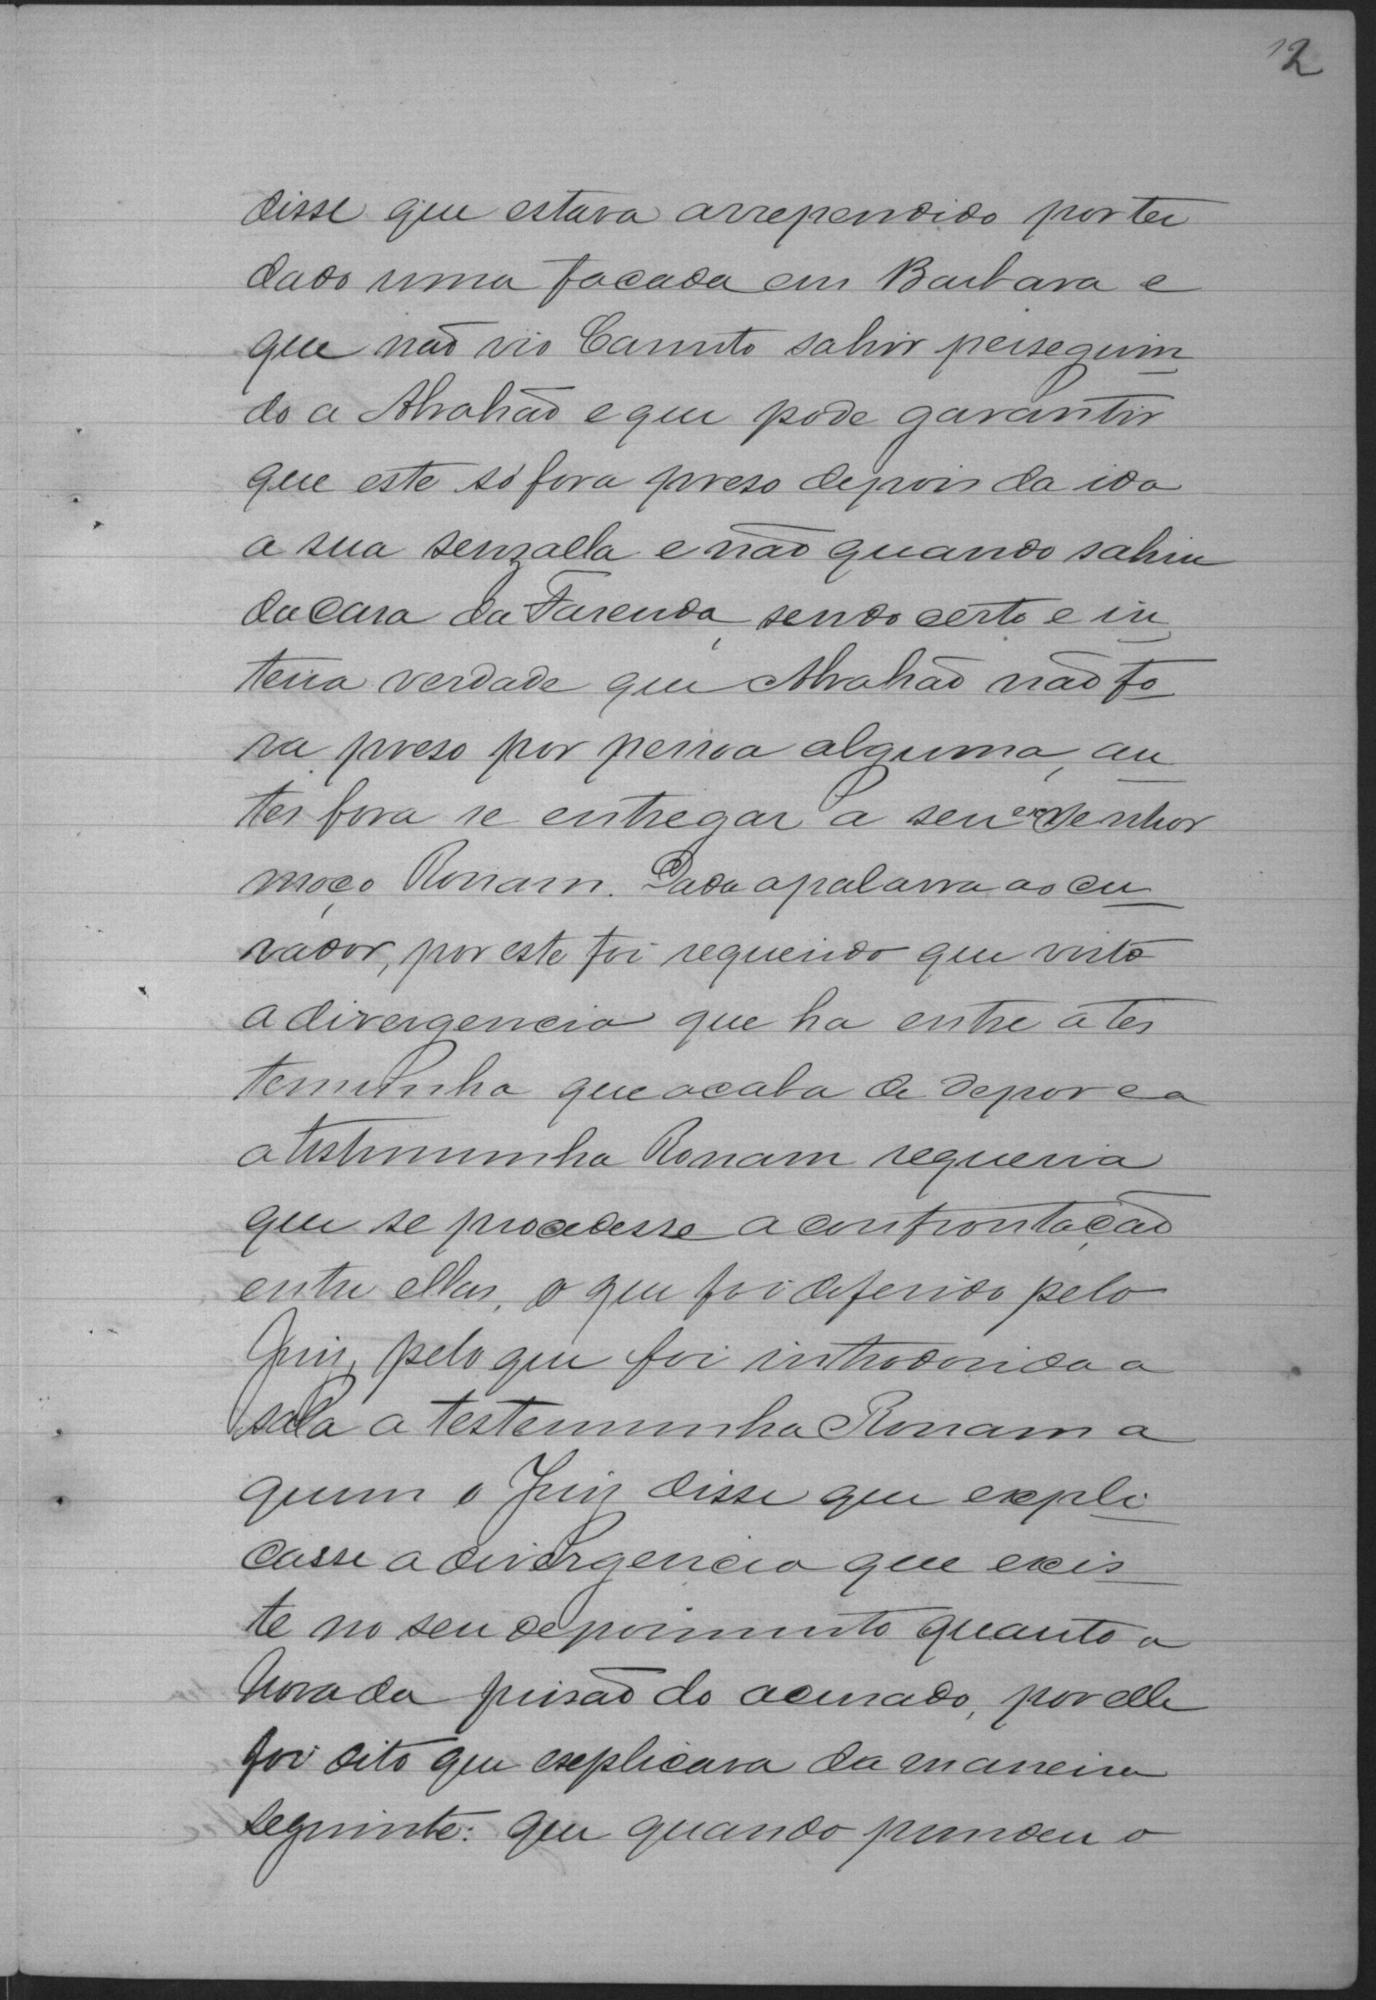 12
disse que estava arrependido por ter
dado uma facada em Barbara e
que não vio Canuto sahir perseguin
do a Abrahão e que pode garantir
que este só fora preso depois da ida
a sua senzalla e não quando sahiu
da casa da Fazenda, sendo certo e in
teira verdade que Abrahão não fo
ra preso por pessoa alguma, an
tes fora se entregar a seu ex Senhor
moço Ronam. Dada a palavra ao cu
rador, por este foi requerido que visto
a divergencia que ha entre a tes
temunha que acaba de depor e a
a testimunha Ronam requeria
que se procedesse a confrontação
entre ellas, o que foi deferido pelo
Juiz, pelo que foi introdosida a
sala a testemunha Ronam a
quem o Juiz disse que expli
casse a divergencia que exis
te no seu depoimento quanto a
hora da prisão do acusado, por elle
foi dito que explicava da maneira
seguinte: que quando prendeu o